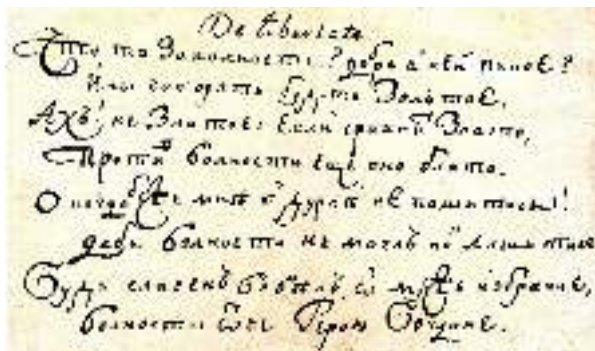 De libertate
Что то за волность? добро в ней какое?
Ины говорять будто золотое.
Ахъ! не златое: если сравнить злато,
Против волности еще оно блато.
О когда бы же мнѣ в дурнѣ не пошитись!
дабы волности не моглъ как лишитись.
Будь славенъ вовѣкъ, о муже избране,
волности отче Герою Богдане.